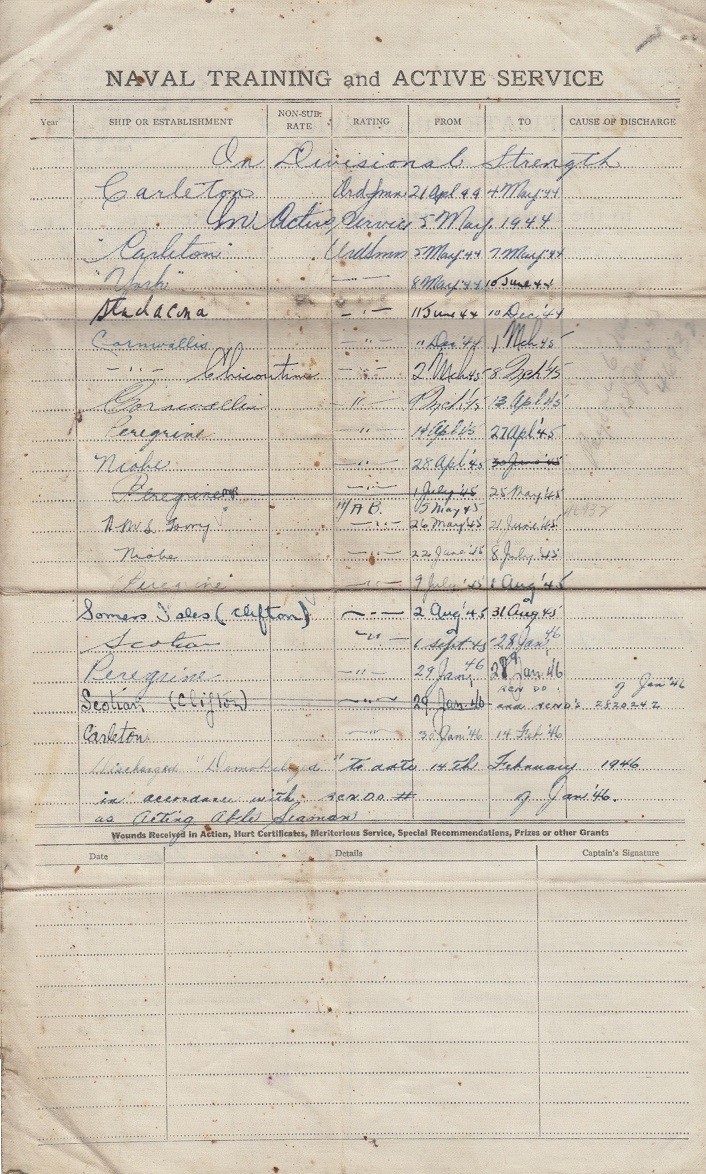 NAVAL TRAINING and ACTIVE SERVICE
Year SHIP OR ESTABLISHMENT NON-SUB. RATE RATING FROM TO CAUSE OF DISCHARGE
On Divisional Strength
Carleton Ord Smn 21 Apl 44 4 May '44
On Active Service 5 May, 1944
"Carleton" Ord Smn 5 May '44 7 May '44
"York" -"- 8 May '44 10 June 44
Stadacona -"- 11 June 44 10 Dec '44
Cornwallis -"- 11 Dec '44 1 Mch 45
-"- Chicoutimi -"- 2 Mch 45 8 Mch '45
Cornwallis -"- 9 Mch '45 13 Apl 45
Peregrine -"- 14 Apl 45 27 Apl '45
Niobe -"- 28 Apl '45 30 June '45
Peregrine 1 July '45 25 May '45
A.B. 15 May 45
-"- 26 May '45 21 June '45
Niobe -"- 22 June '45 8 July '45
Peregrine -"- 9 July '45 1 Aug '45
Somers Isles (Clifton) -"- 2 Aug '45 31 Aug 45
Scotian -"- 1 Sept 45 28 Jan 46
Peregrine -"- 29 Jan 46 28 Jan '46
Scotian (Clifton) -"- 29 Jan 46 RCN DO and RCNO's 2820242 of Jan '46
Carleton -"- 30 Jan '46 14 Feb '46
Discharged "Demobilized" to date 14th February 1946
in accordance with RCNDO # of Jan '46.
as Acting Able Seaman
Wounds Received in Action, Hurt Certificates, Meritorious Service, Special Recommendations, Prizes or other Grants
Date Details Captain's Signature